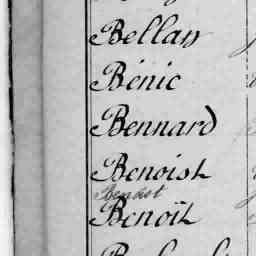 Bellan
Bénic
Bennard
Benoist
Benoist
Benoît